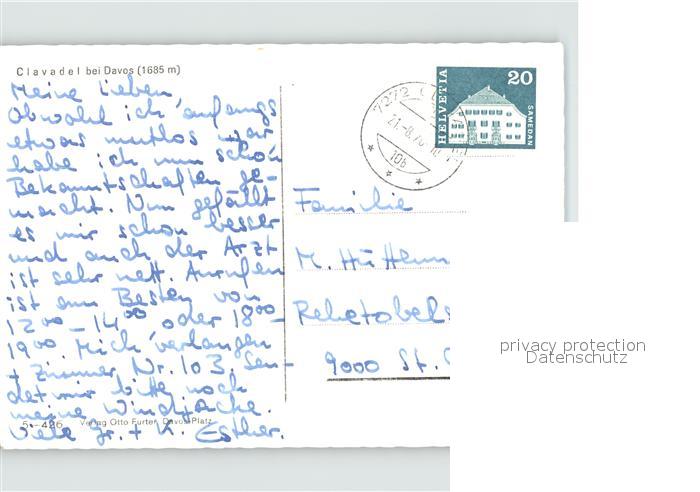 Clavadel bei Davos (1685 m)
Meine Lieben
Obwohl ich anfangs
etwas mutlos war
habe ich nun schon
Bekanntschaften ge-
macht. Nun gefällt
es mir schon besser
und auch der Arzt
ist sehr nett. Anrufen
ist am Besten von
12⁰⁰ – 14⁰⁰ oder 18⁰⁰ –
19⁰⁰ Mich verlangen
+ Zimmer Nr. 103. Sen-
det mir bitte noch
meine Windjacke.
Viele Gr. + K. Esther.
5-426 Verlag Otto Furter, Davos-Platz
HELVETIA
20
SAMEDAN
7272
21.-8.70
10b
Familie
M. Hüttenm
Rehetobels
9000 St.
privacy protection
Datenschutz